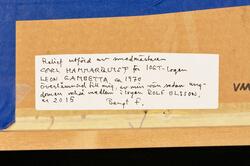 Relief utförd av smedmästaren
CARL HAMMARQUIST för IOGT-logen
LEON GAMBETTA, ca 1970
Överlämnad till mig, av min vän sedan ung-
domen också medlem i logen ROLF OLSSON,
år 2015
Bengt F.
VM